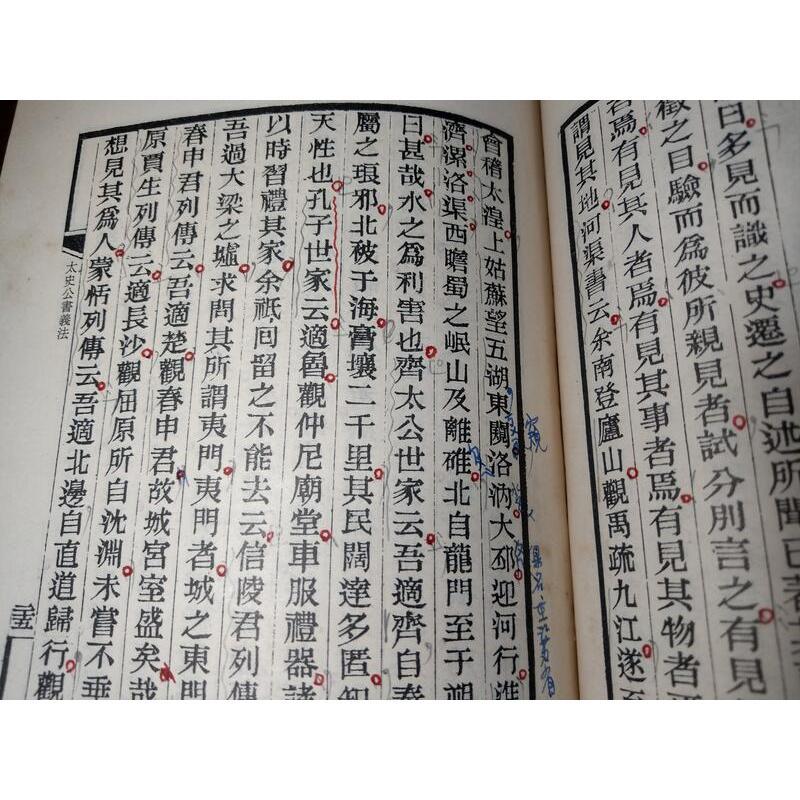 曰多見而識之史遷之自述所聞已
徵之目驗而爲彼所親見者試分別言之有見
爲有見其人者焉有見其事者焉有見其物者
謂見其地河渠書云余南登廬山觀禹疏九江遂至
會稽太湟上姑蘇望五湖東闚洛汭大邳迎河行淮
濟漯洛渠西瞻蜀之岷山及離碓北自龍門至于朔
曰甚哉水之爲利害也齊太公世家云吾適齊自泰
屬之琅邪北被于海膏壤二千里其民闊達多匿知
天性也孔子世家云適魯觀仲尼廟堂車服禮器諸
以時習禮其家余祗回留之不能去云信陵君列傳
吾過大梁之墟求問其所謂夷門夷門者城之東門
春申君列傳云吾適楚觀春申君故城宮室盛矣哉
原賈生列傳云適長沙觀屈原所自沈淵未嘗不垂
想見其爲人蒙恬列傳云吾適北邊自直道歸行觀
太史公書義法